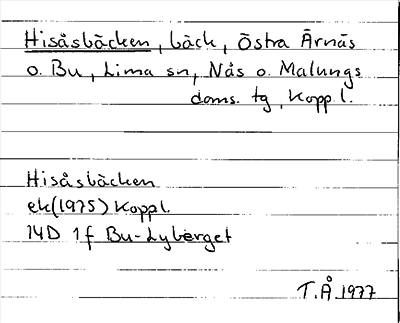 Hisåsbäcken, bäck, Östra Ärnäs
o. Bu, Lima sn, Nås o. Malungs
doms. tg, Kopp l.
Hisåsbäcken
ek(1975) Koppl.
14D 1f Bu-Lyberget
T.Å 1977